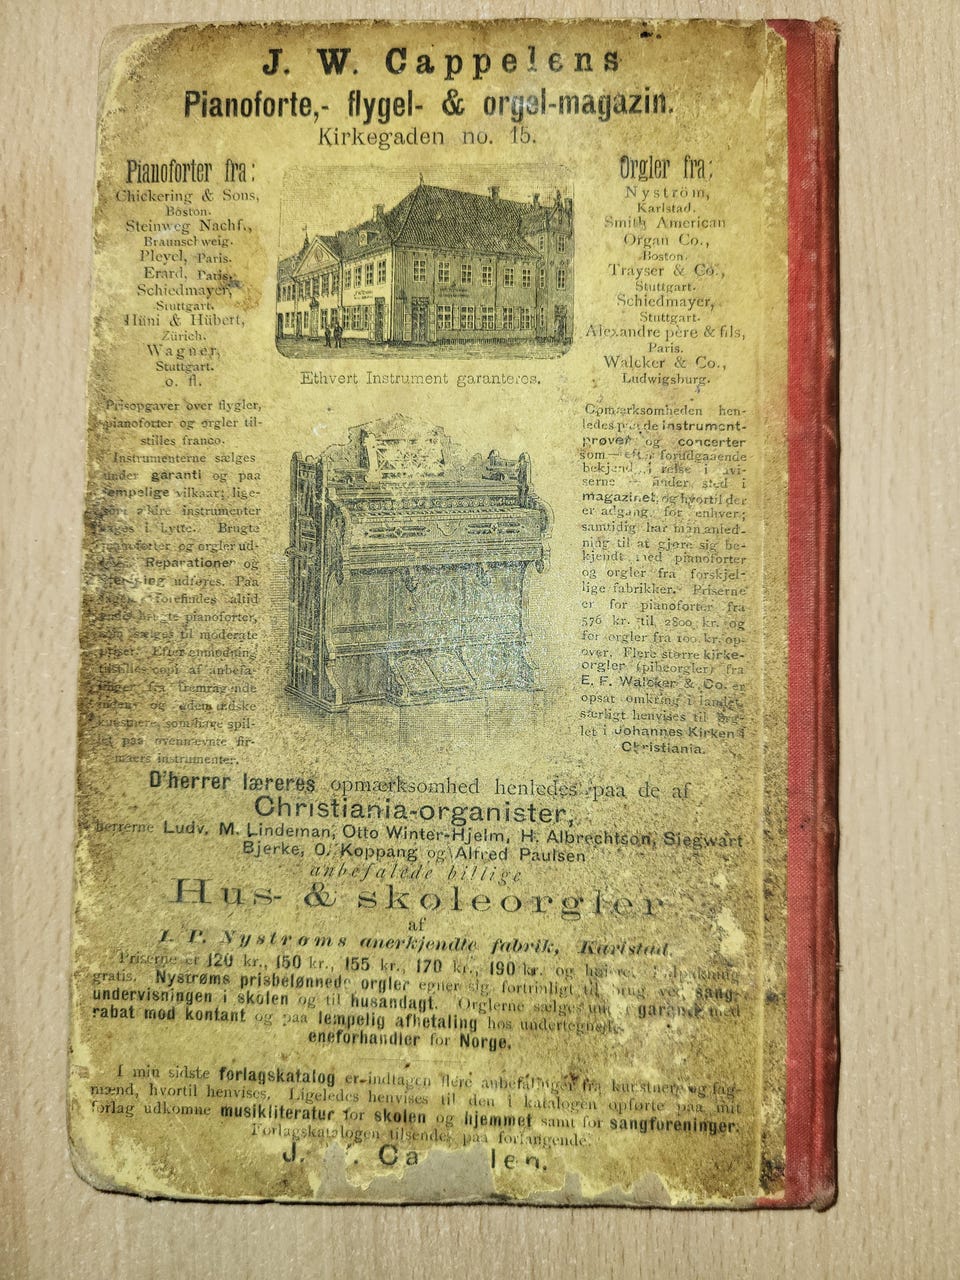 J. W. Cappelens
Pianoforte,- flygel- & orgel-magazin.
Kirkegaden no. 15.
Pianoforter fra:
Chickering & Sons,
Boston.
Steinweg Nachf.,
Braunschweig.
Pleyel, Paris.
Erard, Paris.
Schiedmayer,
Stuttgart.
Hüni & Hübert,
Zürich.
Wagner,
Stuttgart.
o. fl.
Prisopgaver over flygler,
pianoforter og orgler til-
stilles franco.
Instrumenterne sælges
under garanti og paa
lempelige vilkaar; lige-
ældre instrumenter
i bytte. Brugte
og orgler ud-
Reparationer og
udføres. Paa
forefindes altid
pianoforter,
sælges til moderate
priser. Efter anmodning
tilstilles copi af anbefa-
linger fra fremragende
og udenlandske
kunstnere, som have spil-
let paa ovennævnte fir-
maers instrumenter.
Ethvert Instrument garanteres.
Orgler fra:
Nyström,
Karlstad.
Smith American
Organ Co.,
Boston.
Trayser & Co.,
Stuttgart.
Schiedmayer,
Stuttgart.
Alexandre père & fils,
Paris.
Walcker & Co.,
Ludwigsburg.
Opmærksomheden hen-
ledes paa de instrument-
prøver og concerter
som — efter forudgaaende
bekjendtgjørelse i avi-
serne — finder sted i
magazinet, og hvortil der
er adgang for enhver;
samtidig har man anled-
ning til at gjøre sig be-
kjendt med pianoforter
og orgler fra forskjel-
lige fabrikker. Priserne
er for pianoforter fra
576 kr. til 2800 kr. og
for orgler fra 100 kr. op-
over. Flere større kirke-
orgler (pibeorgler) fra
E. F. Walcker & Co. er
opsat omkring i landet,
særligt henvises til org-
let i Johannes Kirken i
Christiania.
D'herrer læreres opmærksomhed henledes paa de af
Christiania-organister,
herrerne Ludv. M. Lindeman, Otto Winter-Hjelm, H. Albrechtson, Siegwart
Bjerke, O. Koppang og Alfred Paulsen
anbefalede billige
Hus- & skoleorgler
af
I. P. Nystrøms anerkjendte fabrik, Karlstad.
Priserne er 120 kr., 150 kr., 155 kr., 170 kr., 190 kr. og høiere. Indpakning
gratis. Nystrøms prisbelønnede orgler egner sig fortrinligt til brug ved sang-
undervisningen i skolen og til husandagt. Orglerne sælges under garanti med
rabat mod kontant og paa lempelig afbetaling hos undertegnede,
eneforhandler for Norge.
I min sidste forlagskatalog er indtagen flere anbefalinger fra kunstnere og fag-
mænd, hvortil henvises. Ligeledes henvises til den i katalogen opførte paa mit
forlag udkomne musikliteratur for skolen og hjemmet samt for sangforeninger.
Forlagskatalogen tilsendes paa forlangende.
J. Ca len.